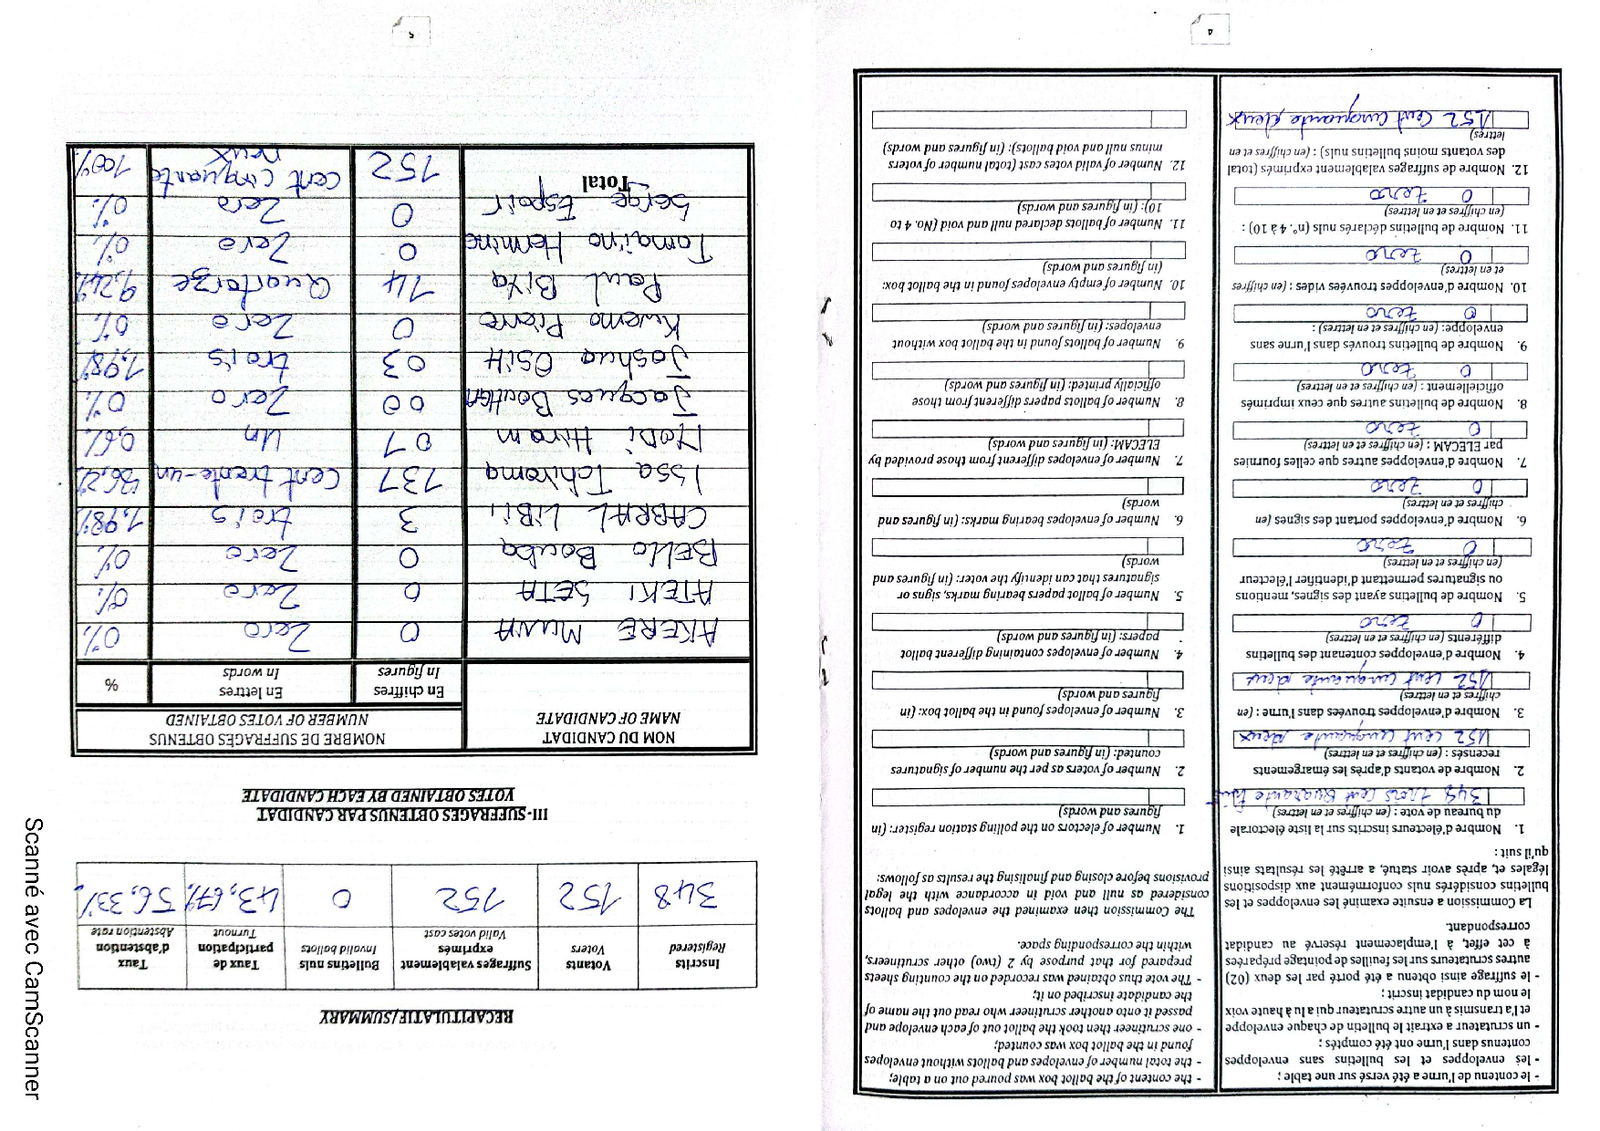 4
- le contenu de l'urne a été versé sur une table ;
- les enveloppes et les bulletins sans enveloppes
contenus dans l'urne ont été comptés ;
- un scrutateur a extrait le bulletin de chaque enveloppe
et l'a transmis à un autre scrutateur qui a lu à haute voix
le nom du candidat inscrit ;
- le suffrage ainsi obtenu a été porté par les deux (02)
autres scrutateurs sur les feuilles de pointage préparées
à cet effet, à l'emplacement réservé au candidat
correspondant.
La Commission a ensuite examiné les enveloppes et les
bulletins considérés nuls conformément aux dispositions
légales et, après avoir statué, a arrêté les résultats ainsi
qu'il suit :
1. Nombre d'électeurs inscrits sur la liste électorale
du bureau de vote : (en chiffres et en lettres)
348 trois cent quarante huit
2. Nombre de votants d'après les émargements
recensés : (en chiffres et en lettres)
152 cent cinquante deux
3. Nombre d'enveloppes trouvées dans l'urne : (en
chiffres et en lettres)
152 cent cinquante deux
4. Nombre d'enveloppes contenant des bulletins
différents (en chiffres et en lettres)
0 zero
5. Nombre de bulletins ayant des signes, mentions
ou signatures permettant d'identifier l'électeur
(en chiffres et en lettres)
0 zero
6. Nombre d'enveloppes portant des signes (en
chiffres et en lettres)
0 zero
7. Nombre d'enveloppes autres que celles fournies
par ELECAM : (en chiffres et en lettres)
0 zero
8. Nombre de bulletins autres que ceux imprimés
officiellement : (en chiffres et en lettres)
0 zero
9. Nombre de bulletins trouvés dans l'urne sans
enveloppe: (en chiffres et en lettres) :
0 zero
10. Nombre d'enveloppes trouvées vides : (en chiffres
et en lettres)
0 zero
11. Nombre de bulletins déclarés nuls (n°. 4 à 10) :
(en chiffres et en lettres)
0 zero
12. Nombre de suffrages valablement exprimés (total
des votants moins bulletins nuls) : (en chiffres et en
lettres)
152 cent cinquante deux
- the content of the ballot box was poured out on a table;
- the total number of envelopes and ballots without envelopes
found in the ballot box was counted;
- one scrutineer then took the ballot out of each envelope and
passed it onto another scrutineer who read out the name of
the candidate inscribed on it;
- The vote thus obtained was recorded on the counting sheets
prepared for that purpose by 2 (two) other scrutineers,
within the corresponding space.
The Commission then examined the envelopes and ballots
considered as null and void in accordance with the legal
provisions before closing and finalising the results as follows:
1. Number of electors on the polling station register: (in
figures and words)
2. Number of voters as per the number of signatures
counted: (in figures and words)
3. Number of envelopes found in the ballot box: (in
figures and words)
4. Number of envelopes containing different ballot
papers: (in figures and words)
5. Number of ballot papers bearing marks, signs or
signatures that can identify the voter: (in figures and
words)
6. Number of envelopes bearing marks: (in figures and
words)
7. Number of envelopes different from those provided by
ELECAM: (in figures and words)
8. Number of ballots papers different from those
officially printed: (in figures and words)
9. Number of ballots found in the ballot box without
envelopes: (in figures and words)
10. Number of empty envelopes found in the ballot box:
(in figures and words)
11. Number of ballots declared null and void (No. 4 to
10): (in figures and words)
12. Number of valid votes cast (total number of voters
minus null and void ballots): (in figures and words)
5
RECAPITULATIF/SUMMARY
Inscrits Registered
Votants Voters
Suffrages valablement exprimés Valid votes cast
Bulletins nuls Invalid ballots
Taux de participation Turnout
Taux d'abstention Abstention rate
348 152 152 0 43,67% 56,33%
III-SUFFRAGES OBTENUS PAR CANDIDAT
VOTES OBTAINED BY EACH CANDIDATE
NOM DU CANDIDAT
NAME OF CANDIDATE
NOMBRE DE SUFFRAGES OBTENUS
NUMBER OF VOTES OBTAINED
En chiffres In figures
En lettres In words
%
AKERE MUNA 0 Zero 0%
ATEKI SETA 0 Zero 0%
BELLO Bouba 0 Zero 0%
CABRAL LiBii 3 trois 1,98%
Issa Tchiroma 131 Cent trente-un 86,2%
IYODI Hiram 01 Un 0,6%
Jacques Bouthia 00 Zero 0%
Joshua OSiH 03 trois 1,98%
Kwemo Pierre 0 Zero 0%
Paul BIYA 14 Quatorze 9,24%
Tomaïno Hermine 0 Zero 0%
Serge Espoir 0 Zero 0%
Total 152 cent cinquante deux 100%
Scanné avec CamScanner